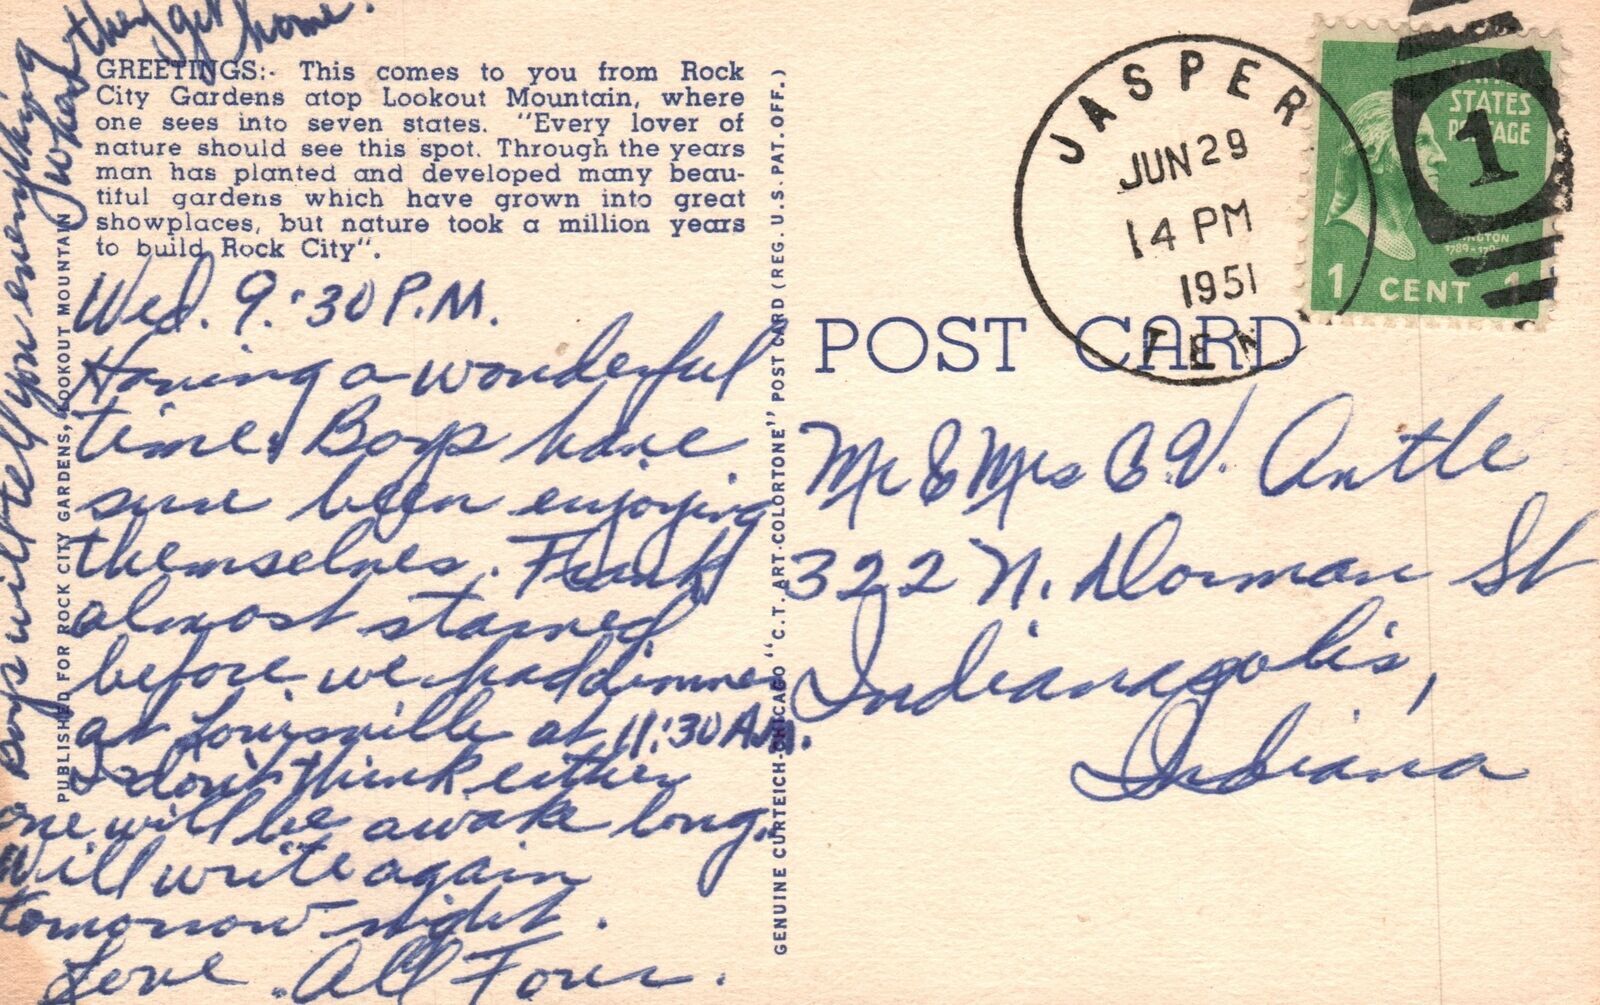 they get home.
GREETINGS:- This comes to you from Rock
City Gardens atop Lookout Mountain, where
one sees into seven states. "Every lover of
nature should see this spot. Through the years
man has planted and developed many beau-
tiful gardens which have grown into great
showplaces, but nature took a million years
to build Rock City".
Wed. 9:30 P.M.
Having a wonderful
time. Boys have
sure been enjoying
themselves. Frank
almost starved
before we had dinner
at Louisville at 11:30 A.M.
I don't think either
one will be awake long.
Will write again
tomorrow night.
Love All Four.
Boys will tell you everything
when
PUBLISHED FOR ROCK CITY GARDENS, LOOKOUT MOUNTAIN
GENUINE CURTEICH-CHICAGO "C.T. ART-COLORTONE" POST CARD (REG. U.S. PAT. OFF.)
JASPER
JUN 29
14 PM
1951
TEN
UNITED
STATES
POSTAGE
1
1789-179
1 CENT 1
POST CARD
Mr & Mrs C V. Antle
322 N. Dorman St
Indianapolis,
Indiana